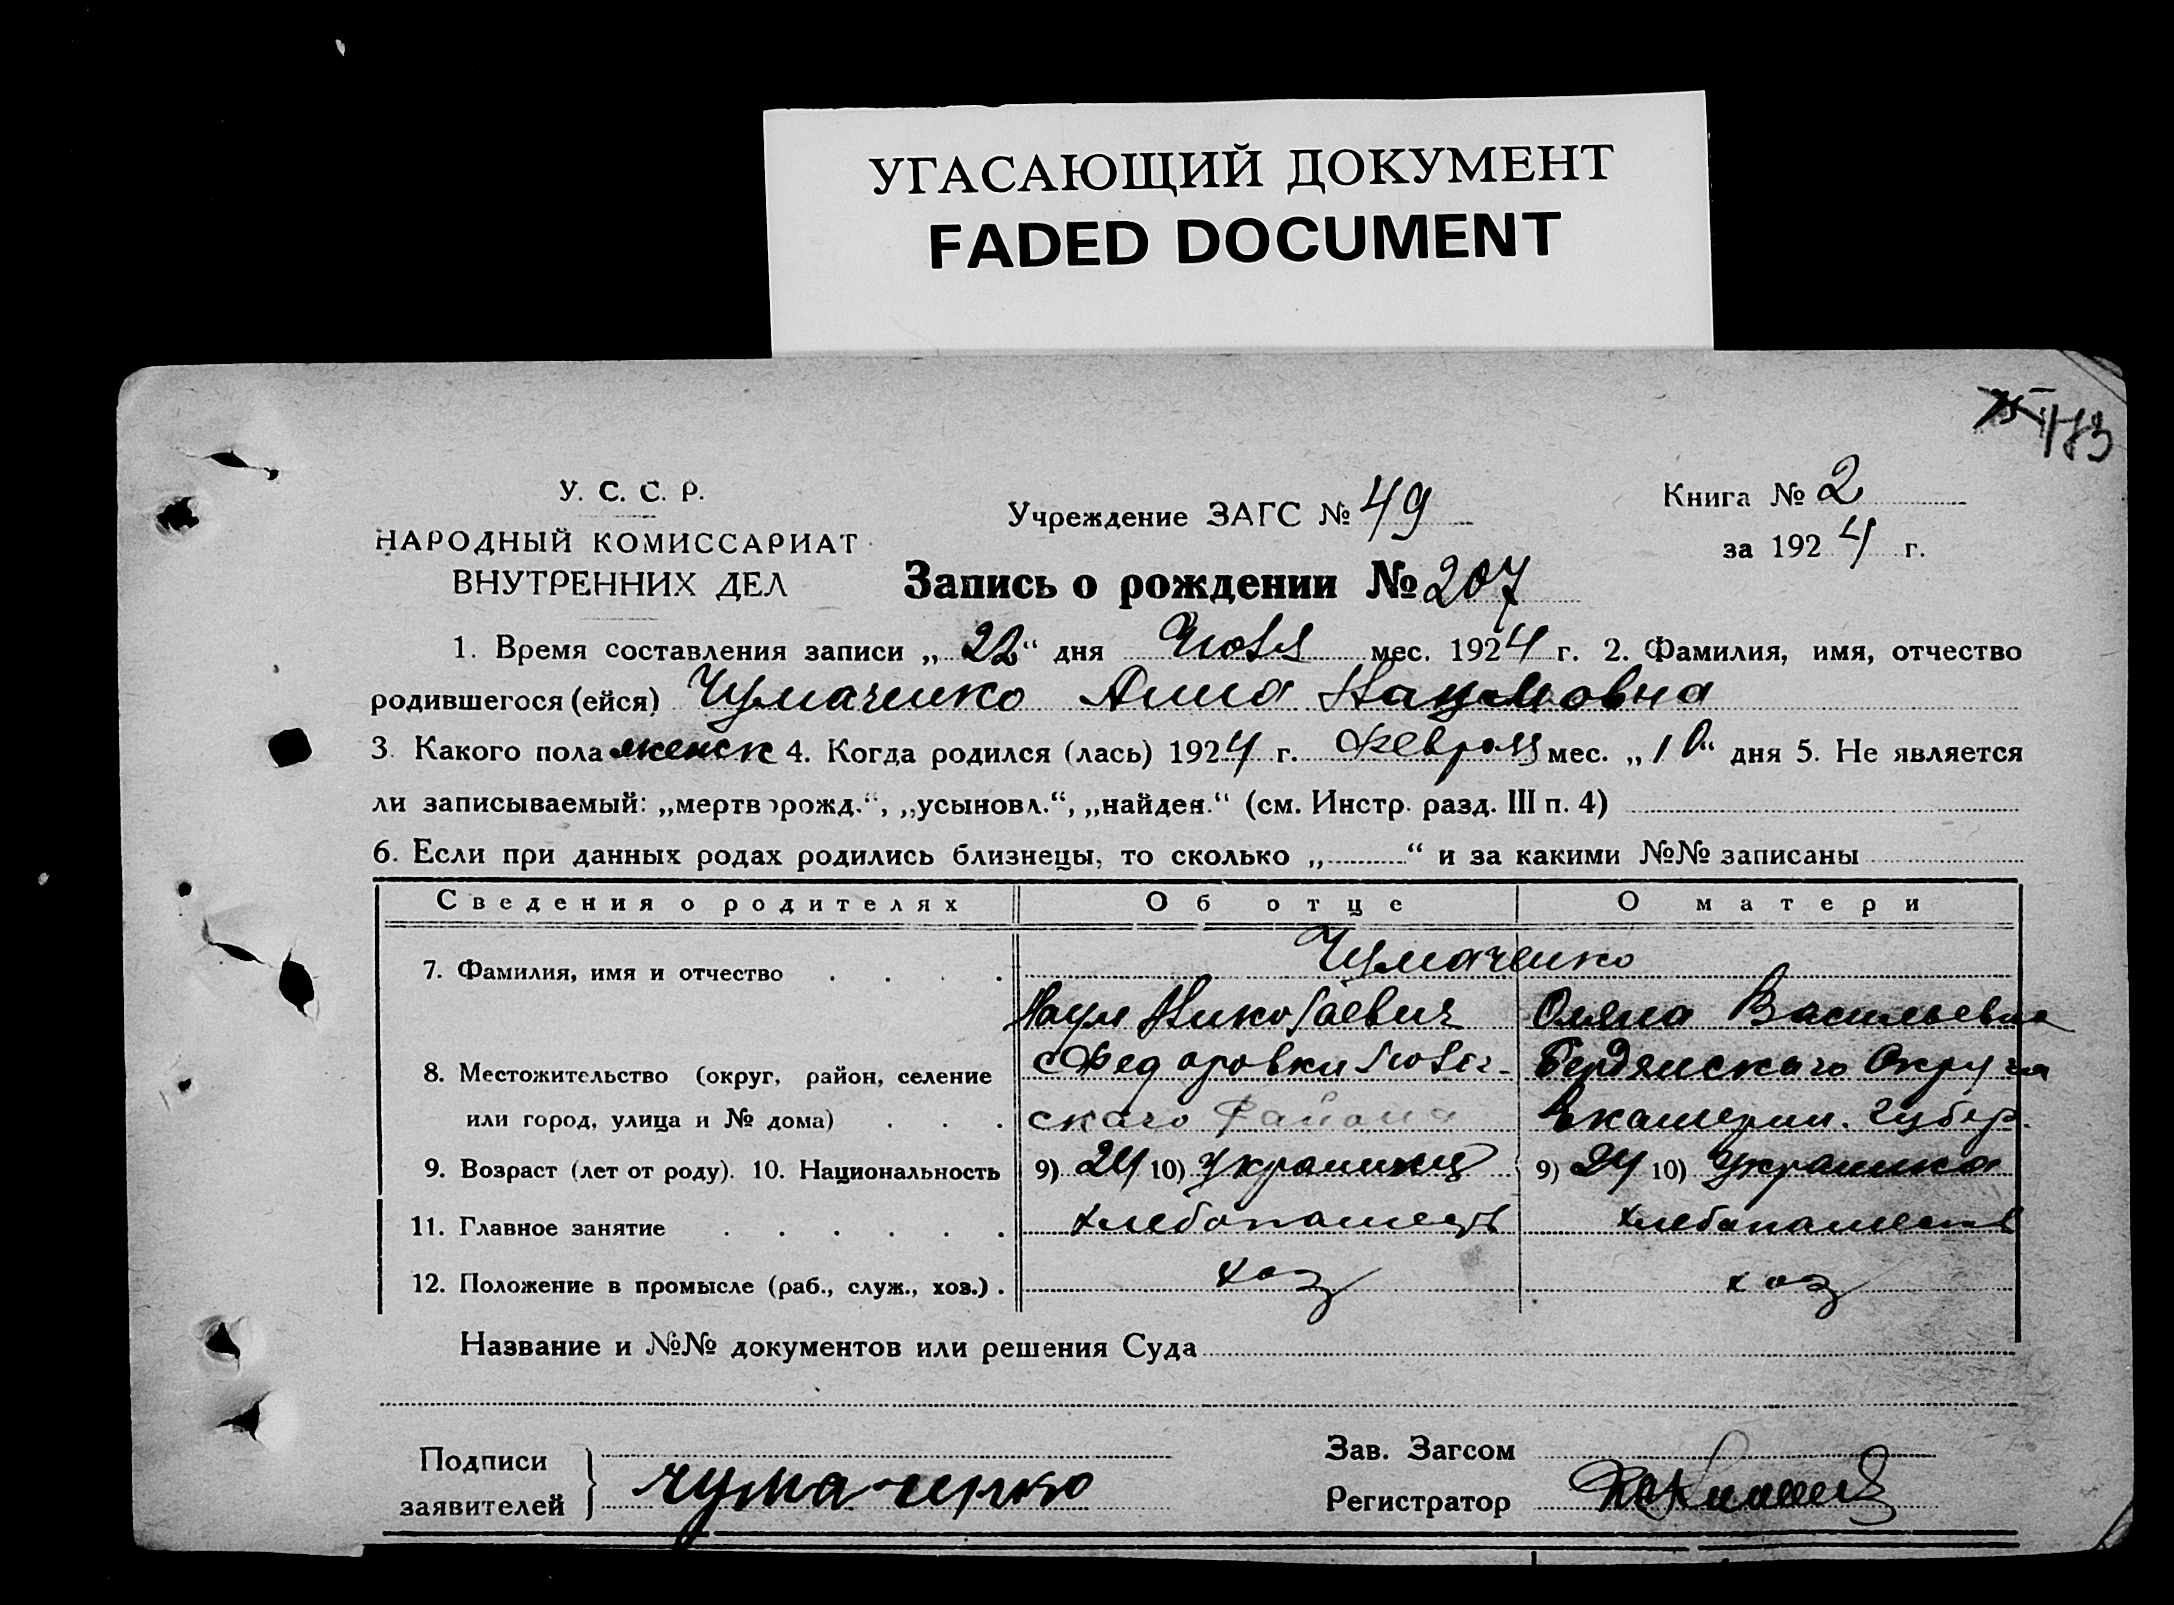 УГАСАЮЩИЙ ДОКУМЕНТ
FADED DOCUMENT
183
У. С. С. Р.
НАРОДНЫЙ КОМИССАРИАТ
ВНУТРЕННИХ ДЕЛ
Учреждение ЗАГС № 49
Книга № 2
за 1924 г.
Запись о рождении № 207
1. Время составления записи „22“ дня мес. 1924 г. 2. Фамилия, имя, отчество
родившегося (ейся) Чумаченко Анна Наумовна
3. Какого пола женск 4. Когда родился (лась) 1924 г. Февраля мес. „10“ дня 5. Не является
ли записываемый: „мертворожд.“, „усыновл.“, „найден.“ (см. Инстр. разд. III п. 4)
6. Если при данных родах родились близнецы, то сколько „ “ и за какими №№ записаны
Сведения о родителях Об отце О матери
7. Фамилия, имя и отчество Чумаченко
Наум Николаевич Васильевна
8. Местожительство (округ, район, селение с Федоровки Бердянского Округа
или город, улица и № дома) ского Района Екатерин. Губер.
9. Возраст (лет от роду). 10. Национальность 9) 24 10) Украинец 9) 24 10) Украинка
11. Главное занятие хлебопашеств хлебопашеств
12. Положение в промысле (раб., служ., хоз.) хоз хоз
Название и №№ документов или решения Суда
Подписи
заявителей
Чумаченко
Зав. Загсом
Регистратор